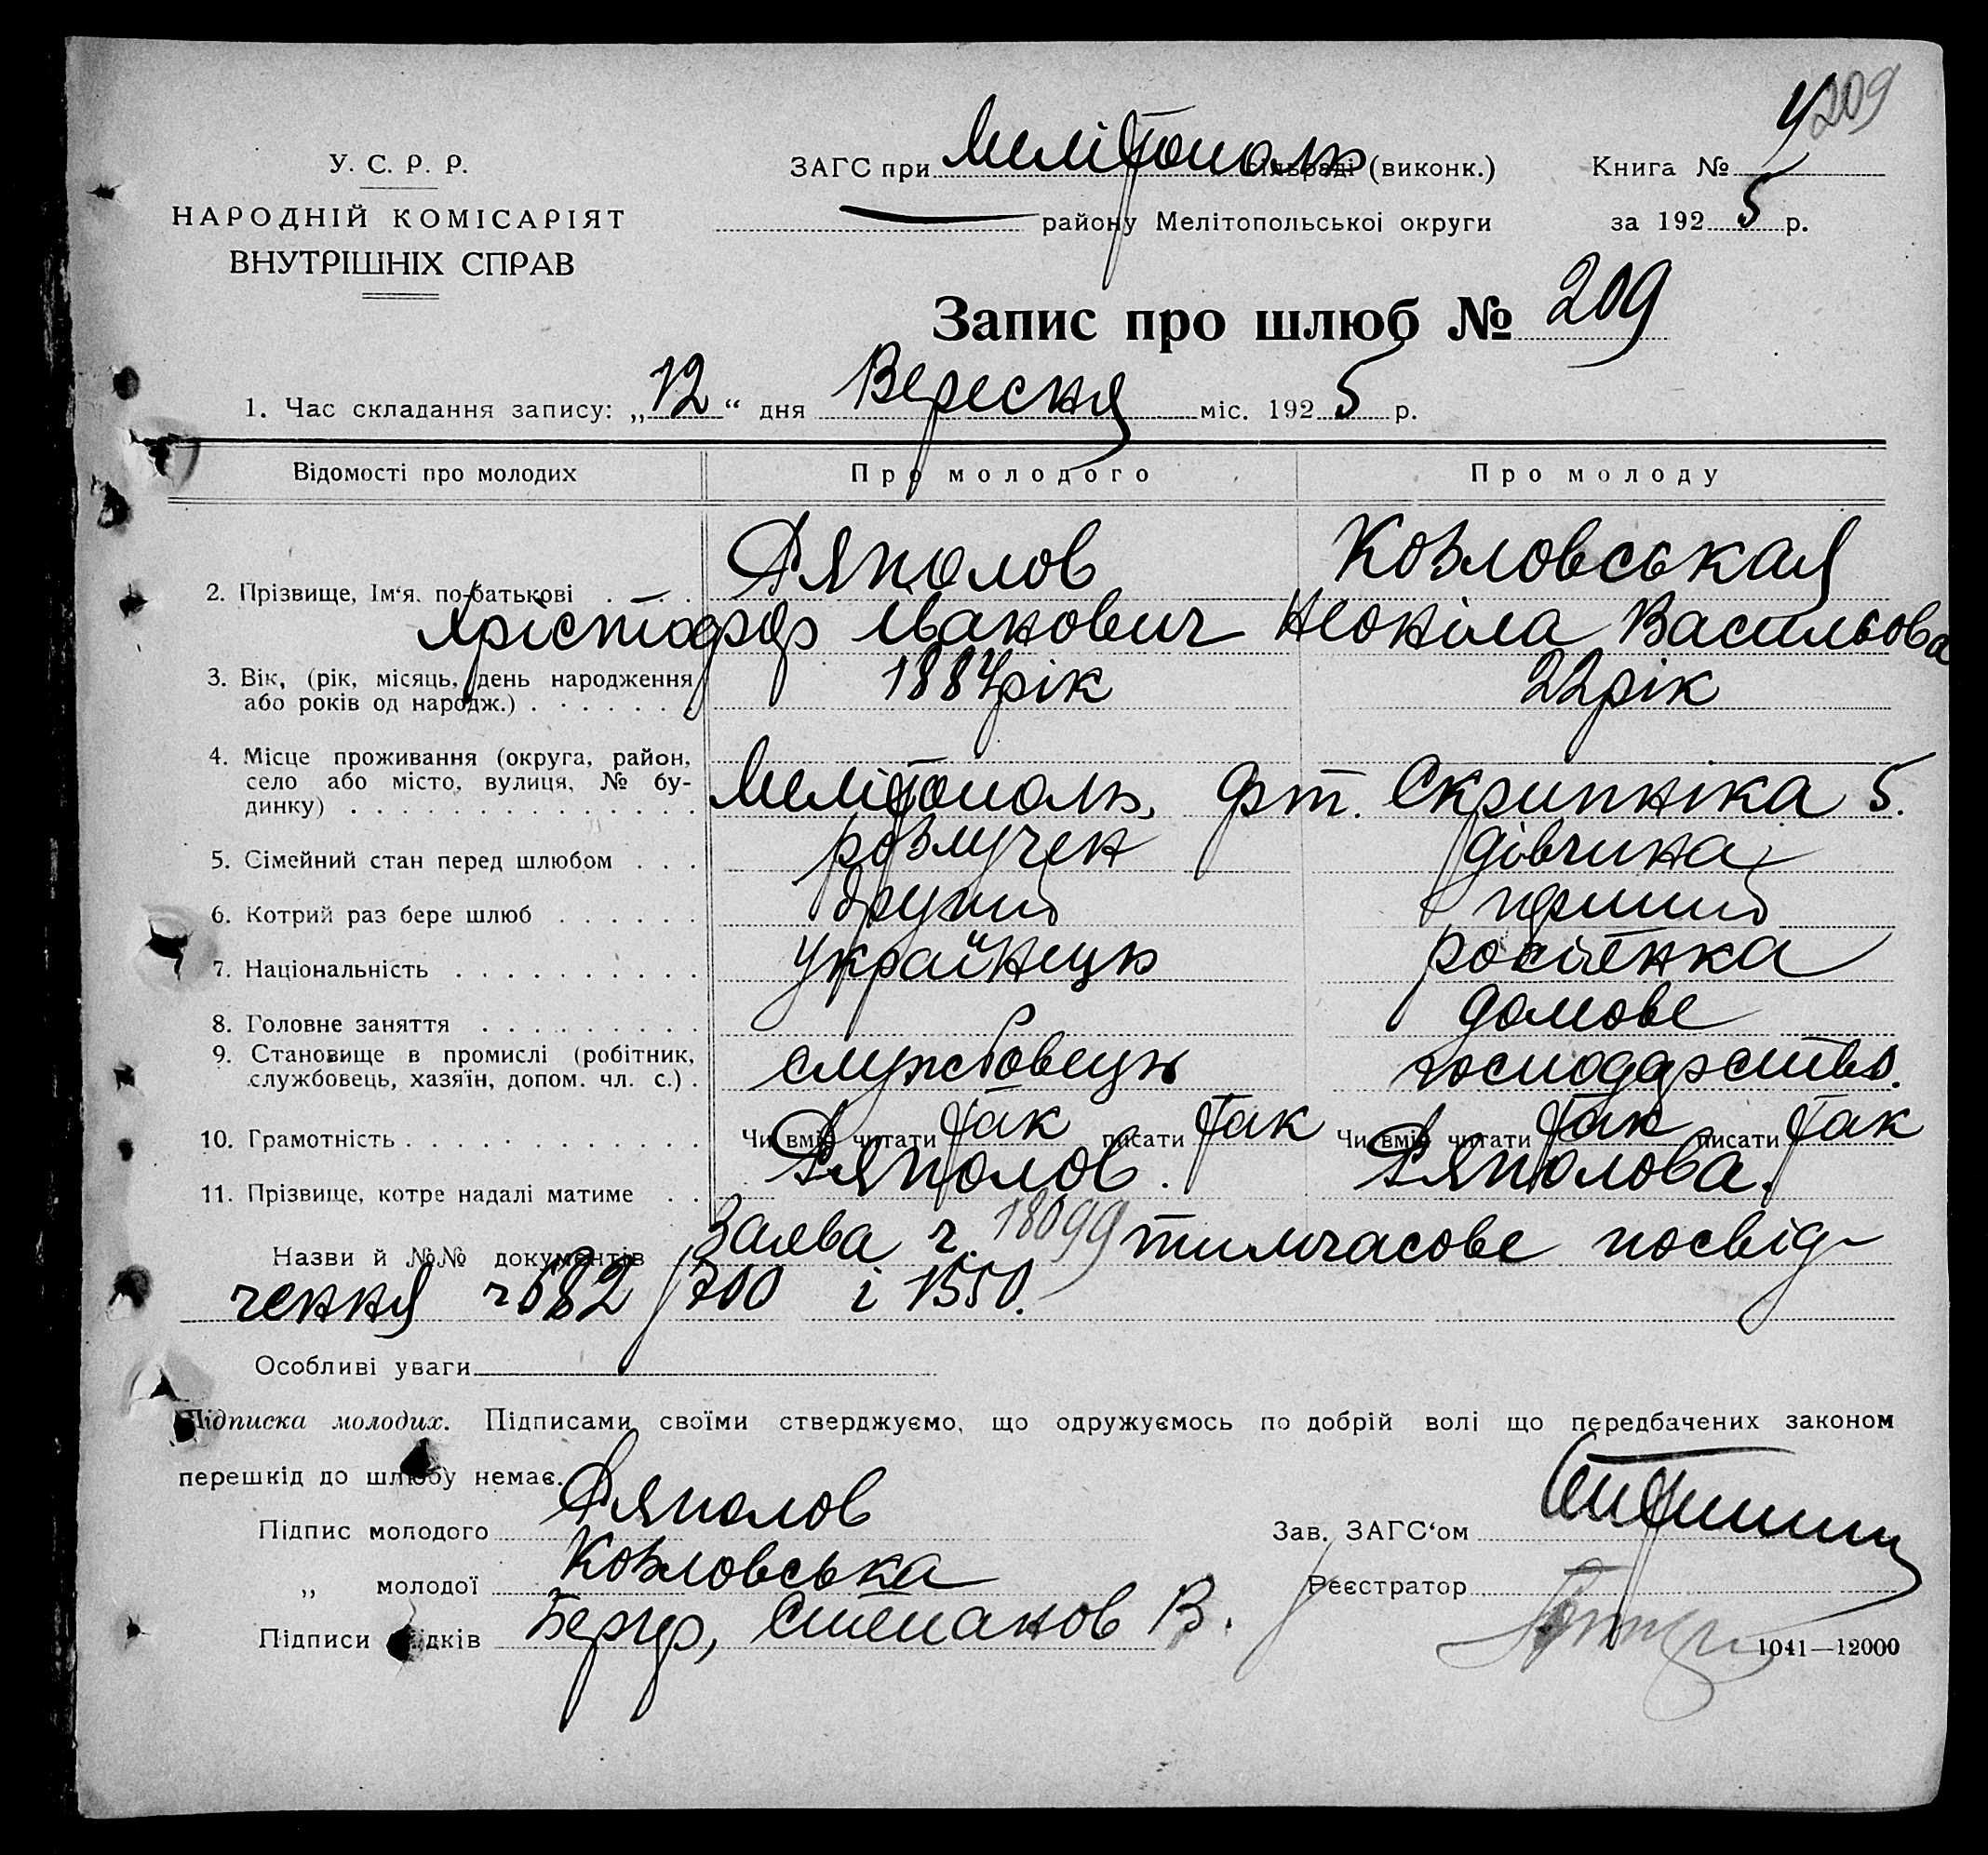 209
У. С. Р. Р.
ЗАГС при Мелітополь сільраді (виконк.) Книга №
НАРОДНІЙ КОМІСАРІЯТ
ВНУТРІШНІХ СПРАВ
району Мелітопольської округи за 1925 р.
Запис про шлюб № 209
1. Час складання запису: „12“ дня Вересня міс. 1925 р.
Відомості про молодих Про молодого Про молоду
Ряполов Козловськая
2. Прізвище, Ім‘я. по-батькові . . . .
Хрістофор Іванович Неоніла Васильова
3. Вік, (рік, місяць, день народження 1884 рік 22 рік
або років од народж.) . . . . . . .
4. Місце проживання (округа, район,
село або місто, вулиця, № бу-
динку) . . . . . . . . . . . . . . Мелітополь, фт. Скрипніка 5.
5. Сімейний стан перед шлюбом . . . розлучен дівчина
6. Котрий раз бере шлюб . . . . . . другий перший
7. Національність . . . . . . . . . . українець росіянка
8. Головне заняття . . . . . . . . . домове
9. Становище в промислі (робітник,
службовець, хазяїн, допом. чл. с.) . службовець господарство.
10. Грамотність . . . . . . . . . . . . Чи вміє читати так писати так Чи вміє читати так писати так
11. Прізвище, котре надалі матиме . . Ряполов. Ряполова.
Назви й №№ документів Заява ч. 18099 тимчасове посвід-
чення ч 682/700 і 1550.
Особливі уваги
Підписка молодих. Підписами своїми стверджуємо, що одружуємось по добрій волі що передбачених законом
перешкід до шлюбу немає.
Підпис молодого Ряполов Зав. ЗАГС‘ом
„ молодої Козловська Реєстратор
Підписи свідків Бергер, Степанов В.
1041—12000